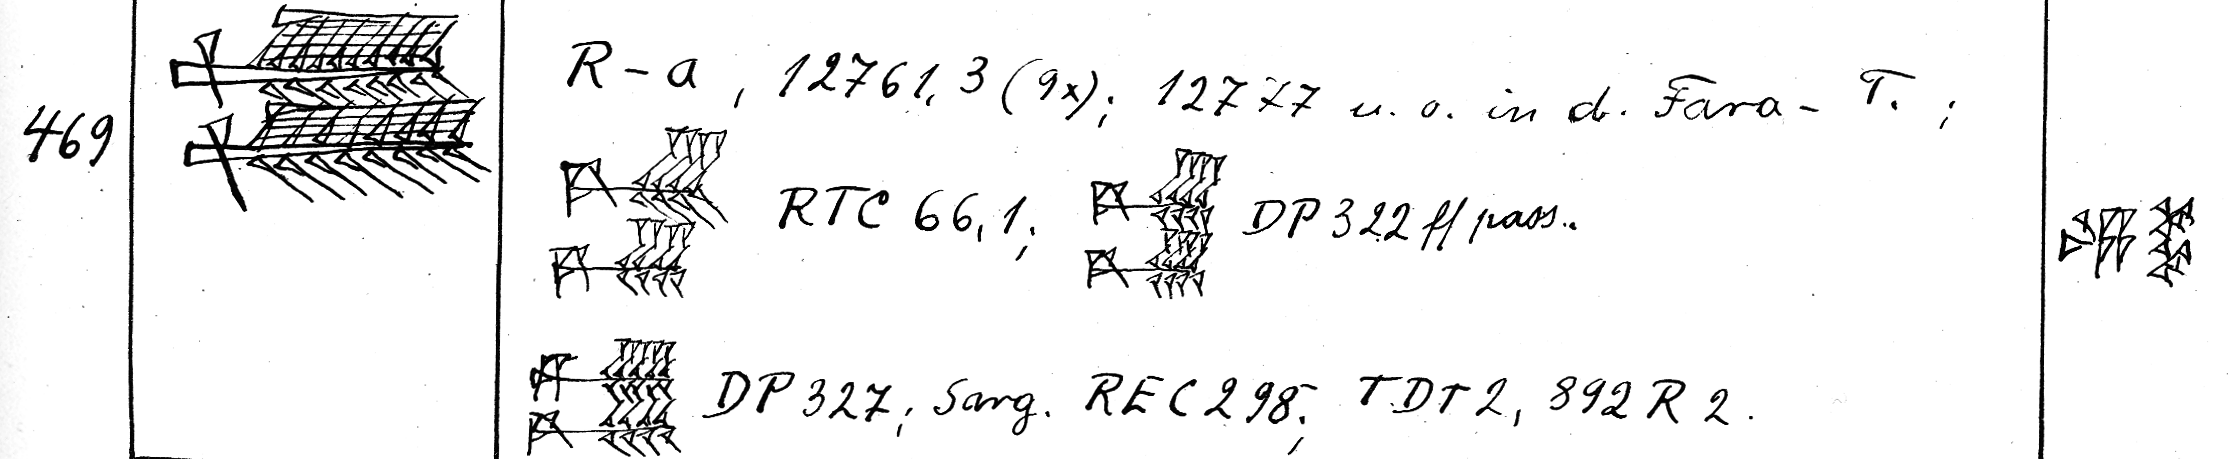 469 R-a, 12761,3 (9x); 12777 u. o. in d. Fara-T.;
RTC 66,1; DP 322 ff pass.
DP 327; Sarg. REC 298; TDT 2, 892 R 2.